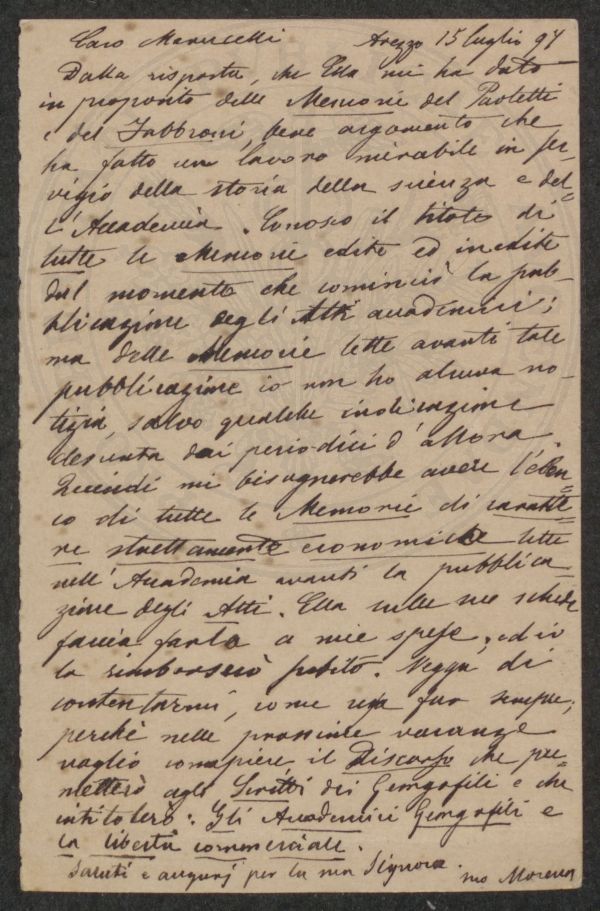 Caro Marucelli Arezzo 15 luglio 97
Dalla risposta, che Ella mi ha dato
in proposito delle Memorie del Paoletti
e del Fabbroni, bene argomento che
ha fatto un lavoro mirabile in ser-
vigio della storia della scienza e del=
l'Accademia. Conosco il titolo di
tutte le Memorie edite ed inedite
dal momento che cominciò la pub-
blicazione degli Atti accademici;
ma delle Memorie lette avanti tale
pubblicazione io non ho alcuna no-
tizia, salvo qualche indicazione
desunta dai periodici d'allora.
Quindi mi bisognerebbe avere l'elen=
co di tutte le Memorie di caratte=
re strettamente economiche lette
nell'Accademia avanti la pubblica-
zione degli Atti. Ella sulle sue schede
faccia farlo a mie spese, ed io
la rimborserò subito. Vegga di
contentarmi, come usa far sempre;
perchè nelle prossime vacanze
voglio compiere il Discorso che pre-
metterò agli Scritti dei Georgofili e che
intitolerò: Gli Accademici Georgofili e
la libertà commerciale.
Saluti e augurj per la sua Signora. suo Morena